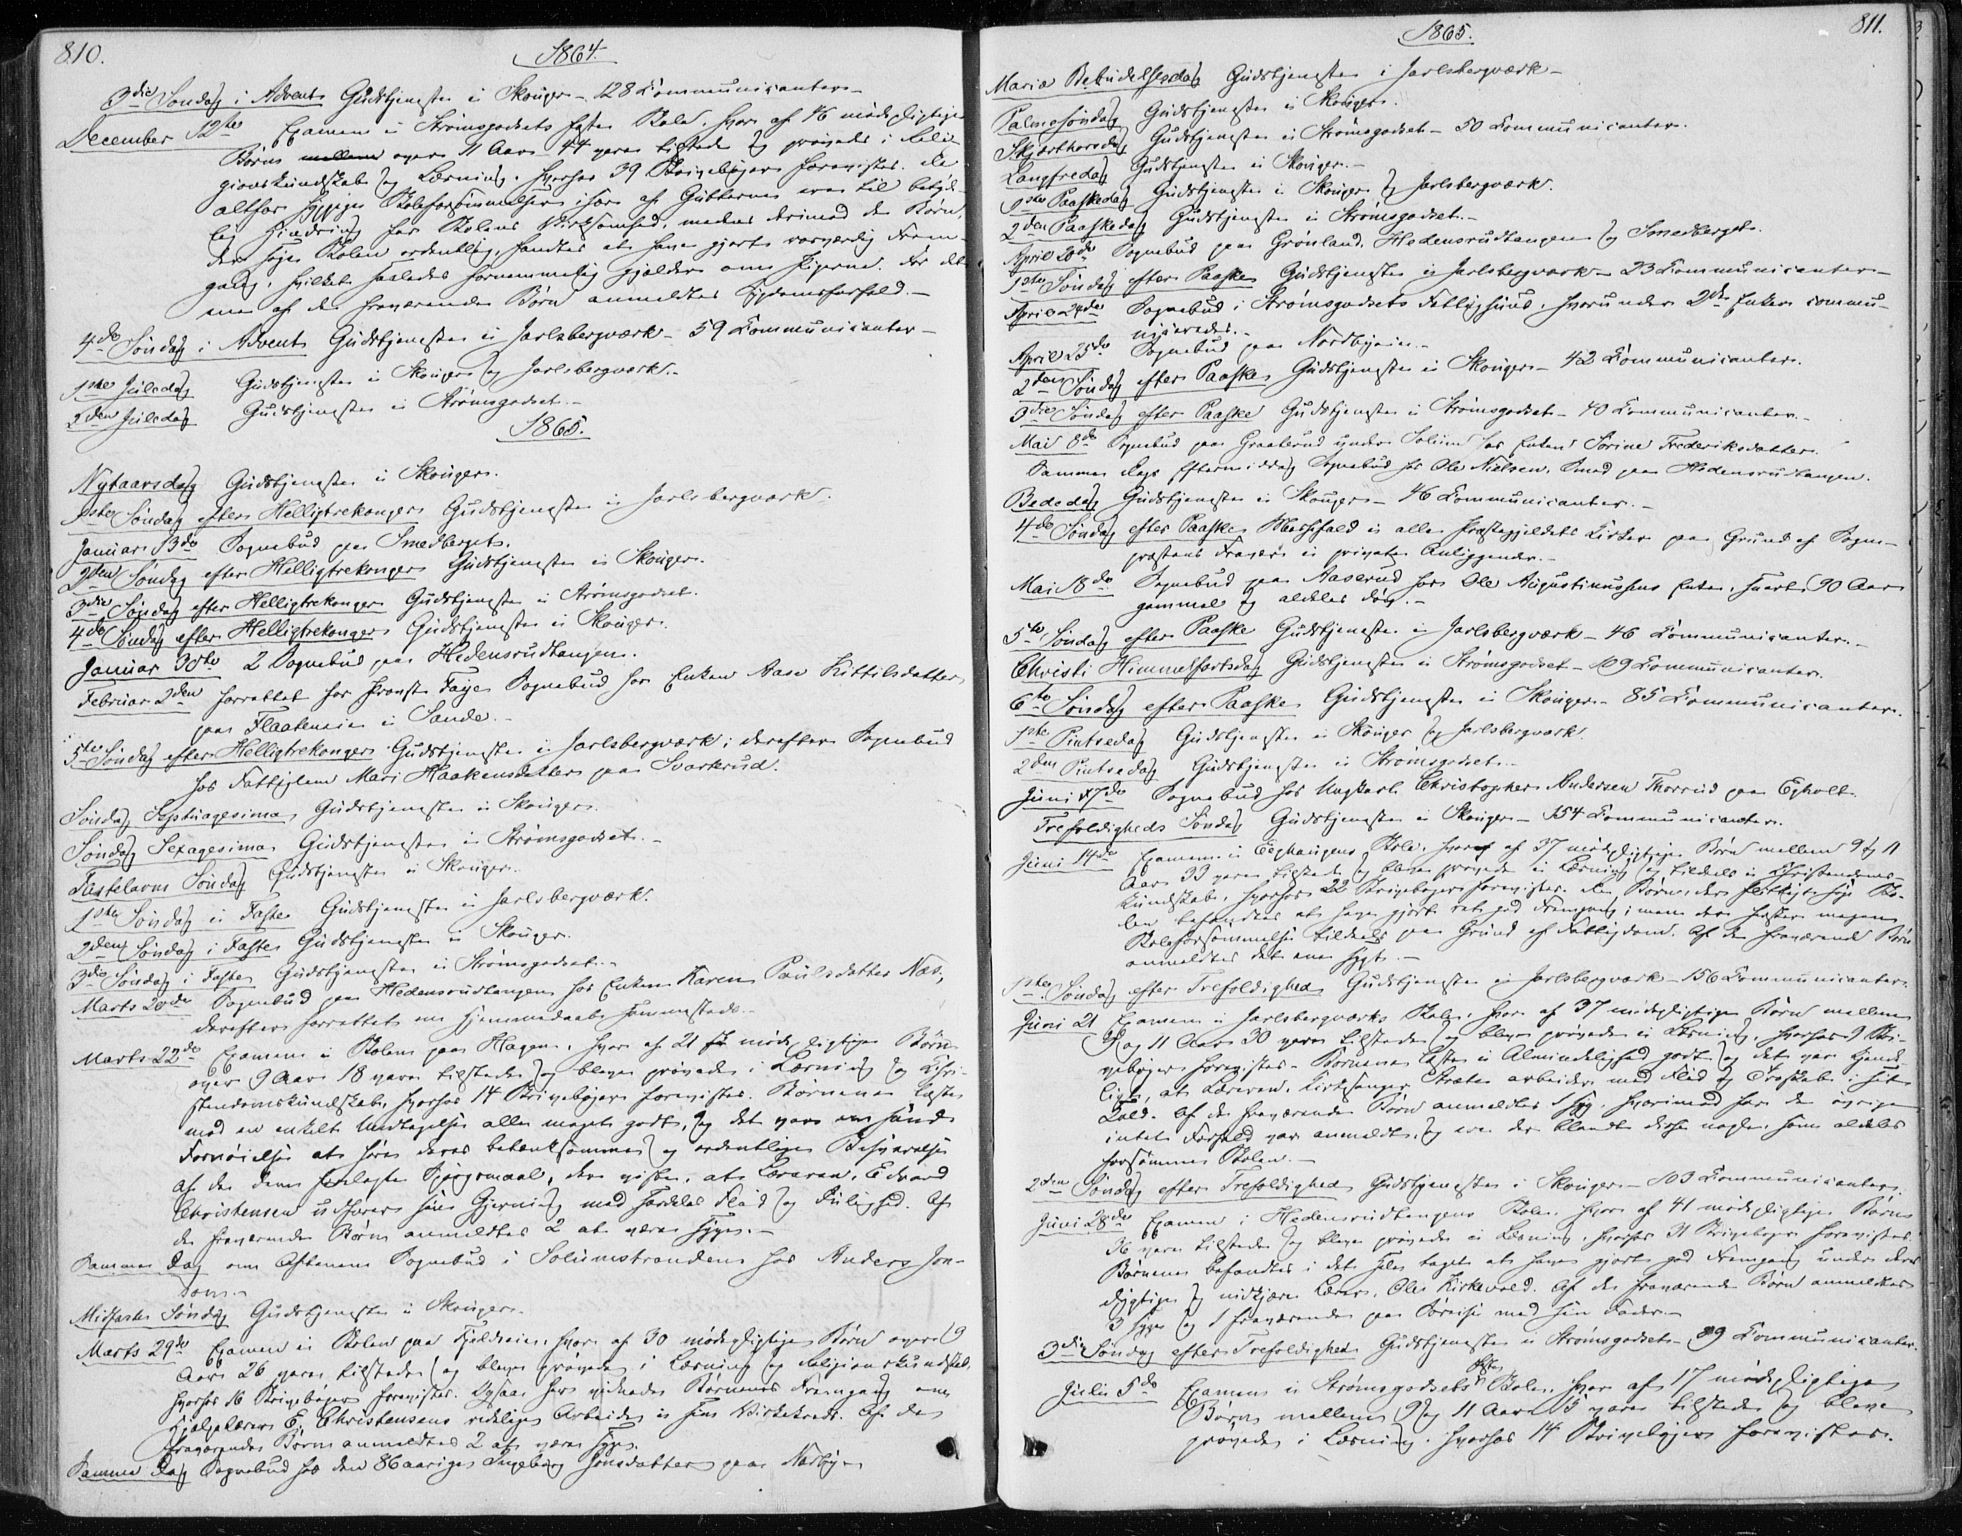 810.
1864.
3die Søndag i Advent Gudstjeneste i Skouger - 128 Communicanter -
December 12te Examen i Strømsgodsets faste Skole, hvor af 46 mødepligtige
Børn mellem over 11 Aar 44 vare tilstede og prøvedes i Reli-
gionskundskab og Læsning, hvorhos 39 Skrivebøger forevistes. De
altfor hyppige Skoleforsømmelser især af Gutterne ere til betyde-
lig Hindring for Skolens Virksomhed, medens derimod de Børn,
der søge Skolen ordentlig, fandtes at have gjort rosværdig Frem-
gang, hvilket saaledes fornemmelig gjælder om Pigerne. For et
enn af de fraværende Børn anmeldtes Sygdomsforfald. -
4de Søndag i Advent Gudstjeneste i Jarlsbergværk - 59 Communicanter -
1ste Juledag Gudstjeneste i Skouger og Jarlsbergværk. -
2den Juledag Gudstjeneste i Strømsgodset. -
1865.
Nytaarsdag Gudstjeneste i Skouger.
1ste Søndag efter Helligtrekonger Gudstjeneste i Jarlsbergværk.
Januar 13de Sognebud paa Smedberget.
2den Søndag efter Helligtrekonger Gudstjeneste i Skouger.
3die Søndag efter Helligtrekonger Gudstjeneste i Strømsgodset.
4de Søndag efter Helligtrekonger Gudstjeneste i Skouger.
Januar 30te 2 Sognebud paa Hedensrudtangen.
Februar 2den forrettet for Provst Faye Sognebud hos Enken Aase Kittilsdatter
paa Flaateneie i Sande. -
5te Søndag efter Helligtrekonger Gudstjeneste i Jarlsbergværk; derefter Sognebud
hos Fattiglem Mari Haakensdatter paa Svarterud.
Søndag Septuagesima Gudstjeneste i Skouger.
Søndag Sexagesima Gudstjeneste i Strømsgodset. -
Fastelavns Søndag Gudstjeneste i Skouger.
1ste Søndag i Faste Gudstjeneste i Jarlsbergværk.
2den Søndag i Faste Gudstjeneste i Skouger.
3die Søndag i Faste Gudstjeneste i Strømsgodset. -
Marts 20de Sognebud paa Hedensrudtangen hos Enken Karen Paulsdatter Næs,
derefter forrettet en Hjemmedaab sammesteds. -
Marts 22de Examen i Skolen paa Hagen, hvor af 21 mødepligtige Børn
over 9 Aar 18 vare tilstede og bleve prøvede i Læsning og Chri-
stendomskundskab, hvorhos 14 Skrivebøger forevistes. Børnene læste
med en enkelt Undtagelse alle meget godt, og det var en sand
Fornøielse at høre deres betænksomme og ordentlige Besvarelse
af de dem forelagte Spørgsmaal, der viste, at Læreren, Edvard
Christensen udfører sin Gjerning med særdeles Flid og Duelighed. Af
de fraværende Børn anmeldtes 2 at være syge. -
Samme Dag om Aftenen Sognebud i Solumstranden hos Anders Jon-
son. -
Midfaste Søndag Gudstjeneste i Skouger. -
Marts 29de Examen i Skolen paa Fjeldseie, hvor af 30 mødepligtige Børn over 9
Aar 26 vare tilstede og bleve prøvede i Læsning og Religionskundskab,
hvorhos 16 Skrivebøger forevistes. Ogsaa her vidnede Børnenes Fremgang om
Hjælpelærer E. Christensens redelige Arbeide i sin Virkekreds. Af de
fraværende Børn anmeldtes 2 at være syge.
Samme Dag Sognebud hos den 86aarige Ingeborg Jonsdatter paa Nordby -
1865.
811.
Mariæ Bebudelsesdag Gudstjeneste i Jarlsbergværk -
Palmesøndag Gudstjeneste i Skouger.
Skjærthorsdag Gudstjeneste i Strømsgodset - 50 Communicanter.
Langfredag Gudstjeneste i Skouger. -
1ste Paaskedag Gudstjeneste i Skouger og Jarlsbergværk.
2den Paaskedag Gudstjeneste i Strømsgodset. -
April 20de Sognebud paa Grønland, Hedensrudtangen og Smedberget.
1ste Søndag efter Paaske Gudstjeneste i Jarlsbergværk - 23 Communicanter -
April 24de Sognebud i Strømsgodsets Fattighuus, hvorunder 2de Enker commu-
niceredes. -
April 25de Sognebud paa Nordbyeie. -
2den Søndag efter Paaske Gudstjeneste i Skouger - 42 Communicanter.
3die Søndag efter Paaske Gudstjeneste i Strømsgodset - 40 Communicanter. -
Mai 8de Sognebud paa Graaterud under Solum hos Enken Sørine Frederiksdatter.
Samme Dags Eftermiddag Sognebud hos Ole Nielsen, Smed paa Hedensrudtangen.
Bededag Gudstjeneste i Skouger - 46 Communicanter. -
4de Søndag efter Paaske Messefald i alle Præstegjeldets Kirker paa Grund af Sogne-
præstens Fravær i private Anliggender. -
Mai 18de Sognebud paa Aaserud hos Ole Augustinussens Enke, snart 90 Aar
gammel og aldeles døv. -
5te Søndag efter Paaske Gudstjeneste i Jarlsbergværk - 46 Communicanter. -
Christi Himmelfartsdag Gudstjeneste i Strømsgodset - 109 Communicanter.
6te Søndag efter Paaske Gudstjeneste i Skouger - 85 Communicanter.
1ste Pintsedag Gudstjeneste i Skouger og Jarlsbergværk.
2den Pintsedag Gudstjeneste i Strømsgodset. -
Juni 7de Sognebud hos Ungkarl Christopher Andersen Thorrud paa Egholt.
Trefoldigheds Søndag Gudstjeneste i Skouger - 154 Communicanter.
Juni 14de Examen i Eeghaugens Skole, hvor af 37 mødepligtige Børn mellem 9 og 11
Aar 33 vare tilstede og bleve prøvede i Læsning og tildels i Christendoms-
kundskab, hvorhos 22 Skrivebøger forevistes. De Børn, der flittigt søge Sko-
len befandtes at have gjort ret god Fremgang; men der hersker megen
Skoleforsømmelse tildeels paa Grund af Fattigdom. Af de fraværende Børn
anmeldtes det ene sygt. -
1ste Søndag efter Trefoldighed Gudstjeneste i Jarlsbergværk - 156 Communicanter.
Juni 21 Examen i Jarlsbergværks Skole, hvor af 37 mødepligtige Børn mellem
9 og 11 Aar 30 vare tilstede og bleve prøvede i Læsning, hvorhos 9 Skri-
vebøger forevistes. Børnene læste i Almindelighed godt og det var kjende-
ligt, at Læreren, Kirkesanger Stræte arbeider med Flid og Troskab i sit
Kald. Af de fraværende Børn anmeldtes 1 syg, hvorimod for de øvrige
intet Forfald var anmeldt, og ere der blandt disse nogle, som aldeles
forsømmer Skolen. -
2den Søndag efter Trefoldighed Gudstjeneste i Skouger - 103 Communicanter.
Juni 28de Examen i Hedensrudtangens Skole, hvor af 41 mødepligtige Børn
36 vare tilstede og bleve prøvede i Læsning, hvorhos 31 Skrivebøger forevistes.
Børnene befandtes i det Hele taget at have gjort god Fremgang under deres
dygtige og nidkjære Lærer, Ole Kirkevold. Af de fraværende Børn anmeldtes
3 syge og 1 fraværende paa Søreise med sin Fader. -
3die Søndag efter Trefoldighed Gudstjeneste i Strømsgodset - 89 Communicanter.
Juli 5de Examen i Strømsgodsets faste Skole, hvor af 17 mødepligtige
Børn mellem 9 og 11 Aar 15 vare tilstede og bleve
prøvede i Læsning, hvorhos 14 Skrivebøger forevistes.